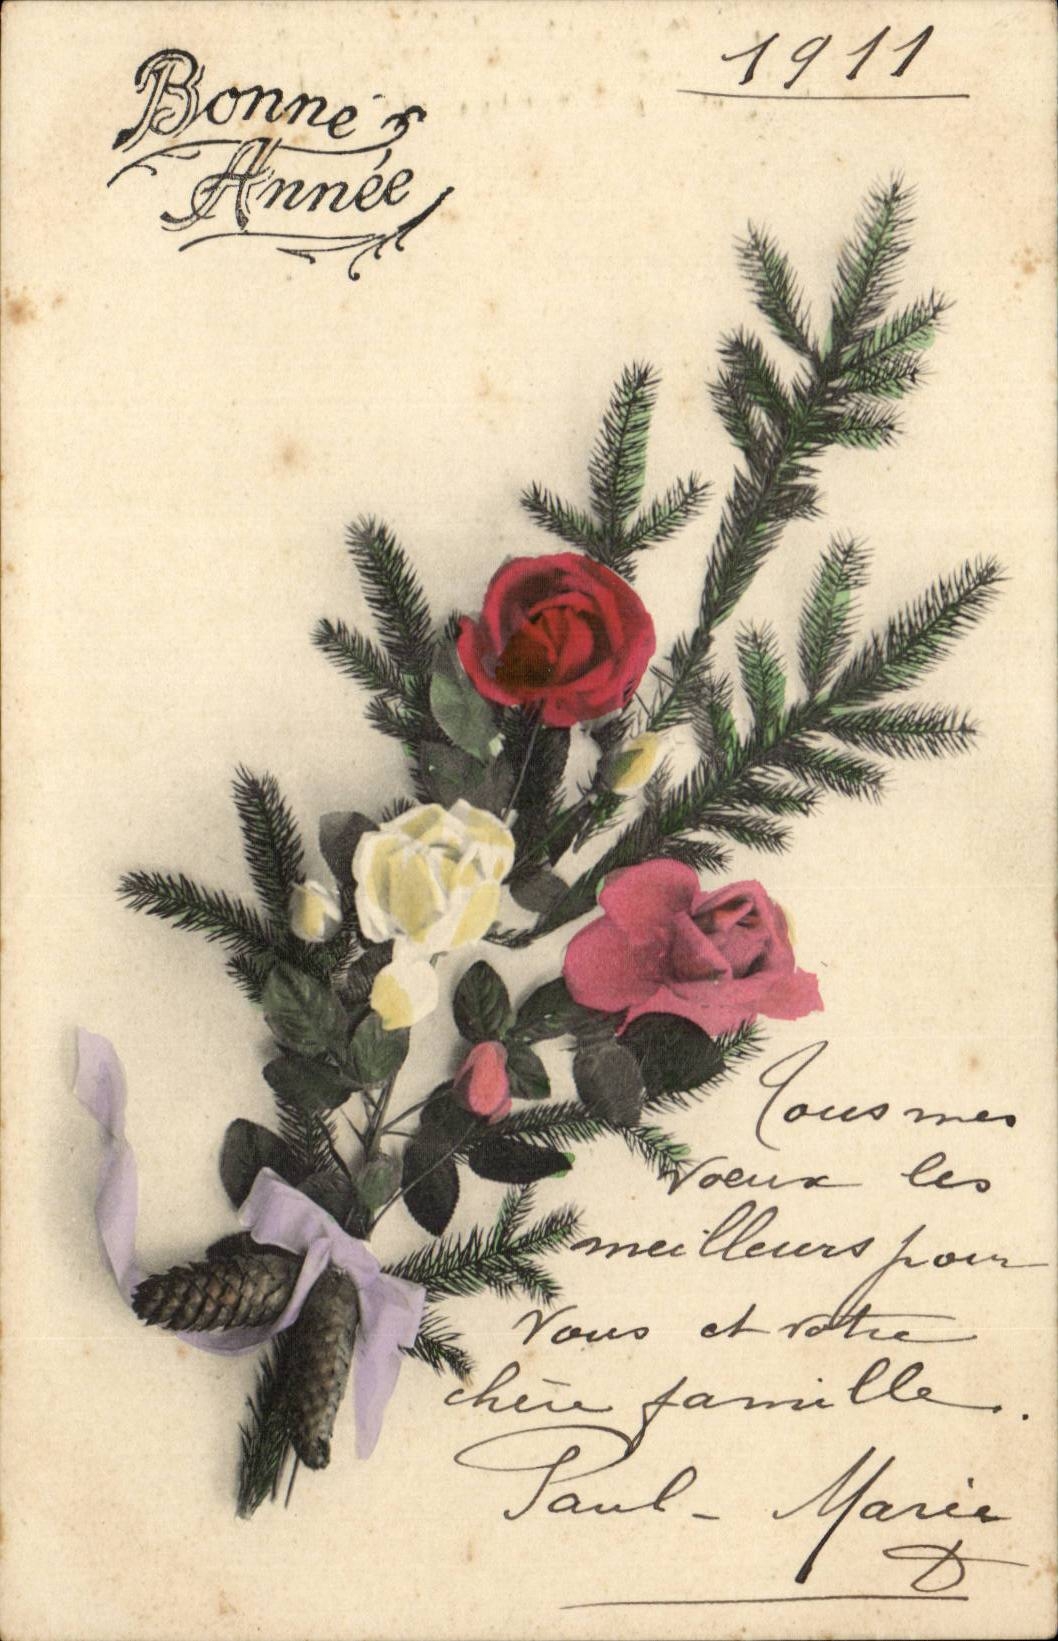 Bonne
Année
1911
Tous mes
voeux les
meilleurs pour
vous et votre
chère famille.
Paul - Marie
D